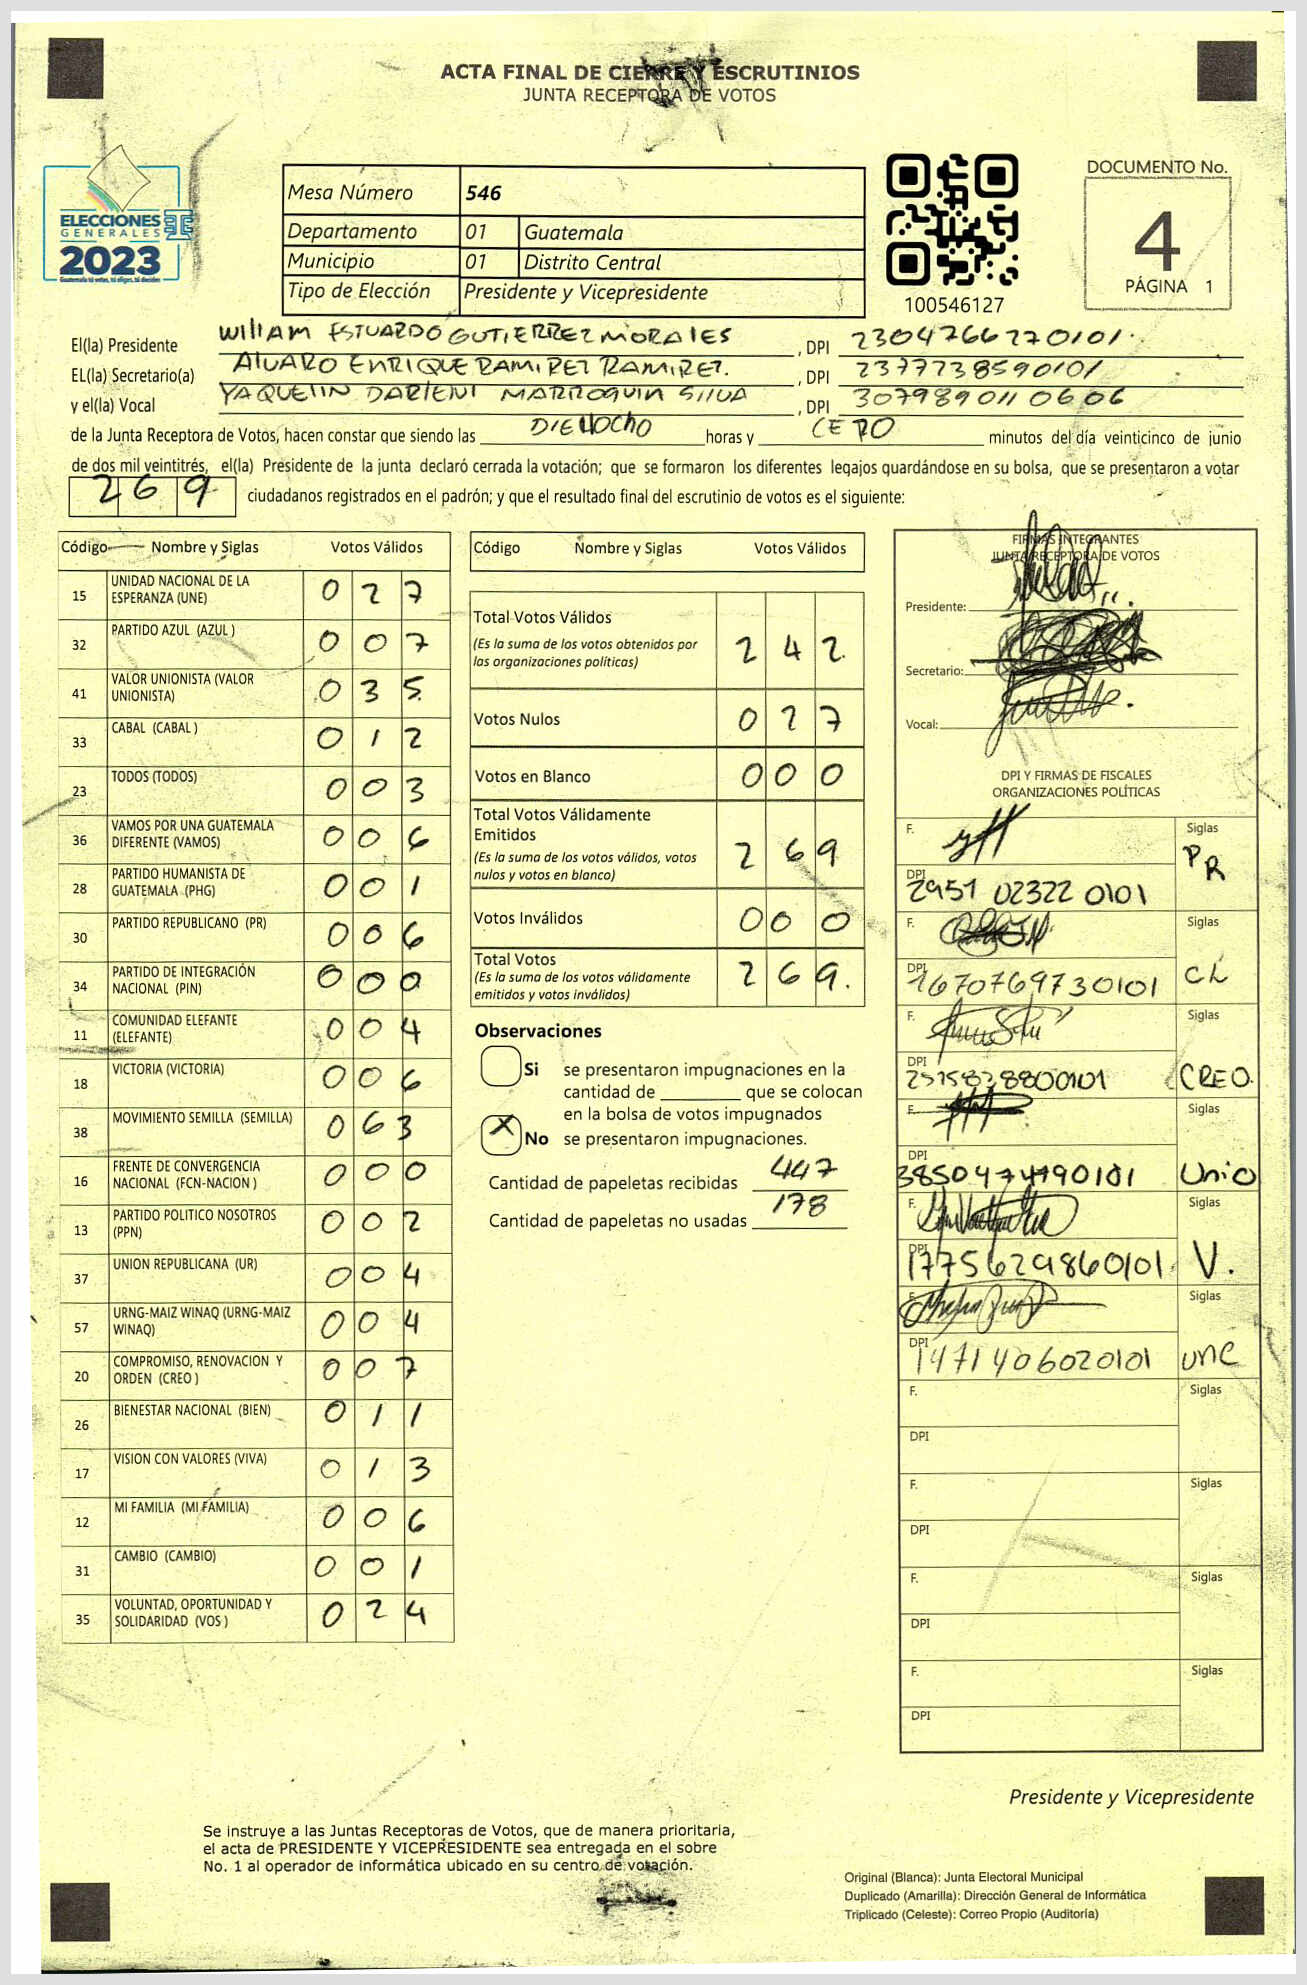 ACTA FINAL DE CIERRE Y ESCRUTINIOS
JUNTA RECEPTORA DE VOTOS
ELECCIONES
GENERALES
2023
Guatemala tú votas, tú eliges, tú decides
Mesa Número 546
Departamento 01 Guatemala
Municipio 01 Distrito Central
Tipo de Elección Presidente y Vicepresidente
100546127
DOCUMENTO No.
4
PÁGINA 1
El(la) Presidente WIlIAM ESTUARDO GUTIERREZ MORALES , DPI 2304766270101
EL(la) Secretario(a) AlVARO ENRIQUE RAMIREZ RAMIREZ. , DPI 2377738590101
y el(la) Vocal YAQUELIN DARIENI MARROQUIN SIlVA , DPI 3079890110606
de la Junta Receptora de Votos, hacen constar que siendo las DIEIIOCHO horas y CERO minutos del día veinticinco de junio
de dos mil veintitrés, el(la) Presidente de la junta declaró cerrada la votación; que se formaron los diferentes legajos guardándose en su bolsa, que se presentaron a votar
269 ciudadanos registrados en el padrón; y que el resultado final del escrutinio de votos es el siguiente:
Código Nombre y Siglas Votos Válidos
15 UNIDAD NACIONAL DE LA ESPERANZA (UNE) 0 2 7
32 PARTIDO AZUL (AZUL ) 0 0 7
41 VALOR UNIONISTA (VALOR UNIONISTA) 0 3 5
33 CABAL (CABAL ) 0 1 2
23 TODOS (TODOS) 0 0 3
36 VAMOS POR UNA GUATEMALA DIFERENTE (VAMOS) 0 0 6
28 PARTIDO HUMANISTA DE GUATEMALA (PHG) 0 0 1
30 PARTIDO REPUBLICANO (PR) 0 0 6
34 PARTIDO DE INTEGRACIÓN NACIONAL (PIN) 0 0 0
11 COMUNIDAD ELEFANTE (ELEFANTE) 0 0 4
18 VICTORIA (VICTORIA) 0 0 6
38 MOVIMIENTO SEMILLA (SEMILLA) 0 6 3
16 FRENTE DE CONVERGENCIA NACIONAL (FCN-NACION ) 0 0 0
13 PARTIDO POLITICO NOSOTROS (PPN) 0 0 2
37 UNION REPUBLICANA (UR) 0 0 4
57 URNG-MAIZ WINAQ (URNG-MAIZ WINAQ) 0 0 4
20 COMPROMISO, RENOVACION Y ORDEN (CREO ) 0 0 7
26 BIENESTAR NACIONAL (BIEN) 0 1 1
17 VISION CON VALORES (VIVA) 0 1 3
12 MI FAMILIA (MI FAMILIA) 0 0 6
31 CAMBIO (CAMBIO) 0 0 1
35 VOLUNTAD, OPORTUNIDAD Y SOLIDARIDAD (VOS ) 0 2 4
Código Nombre y Siglas Votos Válidos
Total Votos Válidos 2 4 2
(Es la suma de los votos obtenidos por
las organizaciones políticas)
Votos Nulos 0 2 7
Votos en Blanco 0 0 0
Total Votos Válidamente
Emitidos 2 6 9
(Es la suma de los votos válidos, votos
nulos y votos en blanco)
Votos Inválidos 0 0 0
Total Votos 2 6 9.
(Es la suma de los votos válidamente
emitidos y votos inválidos)
Observaciones
Si se presentaron impugnaciones en la
cantidad de ________ que se colocan
en la bolsa de votos impugnados
X No se presentaron impugnaciones.
Cantidad de papeletas recibidas 447
Cantidad de papeletas no usadas 178
FIRMAS INTEGRANTES
JUNTA RECEPTORA DE VOTOS
Presidente:
Secretario:
Vocal:
DPI Y FIRMAS DE FISCALES
ORGANIZACIONES POLÍTICAS
F. Siglas
DPI 2951 02322 0101 PR
F. Siglas
DPI 1670769730101 CL
F. Siglas
DPI CREO.
F. Siglas
DPI 3850474790101 Unio
F. Siglas
DPI 1775629860101 V.
F. Siglas
DPI 1471406020101 une
F. Siglas
DPI
F. Siglas
DPI
F. Siglas
DPI
F. Siglas
DPI
Presidente y Vicepresidente
Se instruye a las Juntas Receptoras de Votos, que de manera prioritaria,
el acta de PRESIDENTE Y VICEPRESIDENTE sea entregada en el sobre
No. 1 al operador de informática ubicado en su centro de votación.
Original (Blanca): Junta Electoral Municipal
Duplicado (Amarilla): Dirección General de Informática
Triplicado (Celeste): Correo Propio (Auditoría)